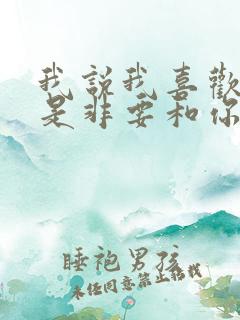 我說我喜歡
是非要和你
睡袍男孩
未经同意禁止搭我